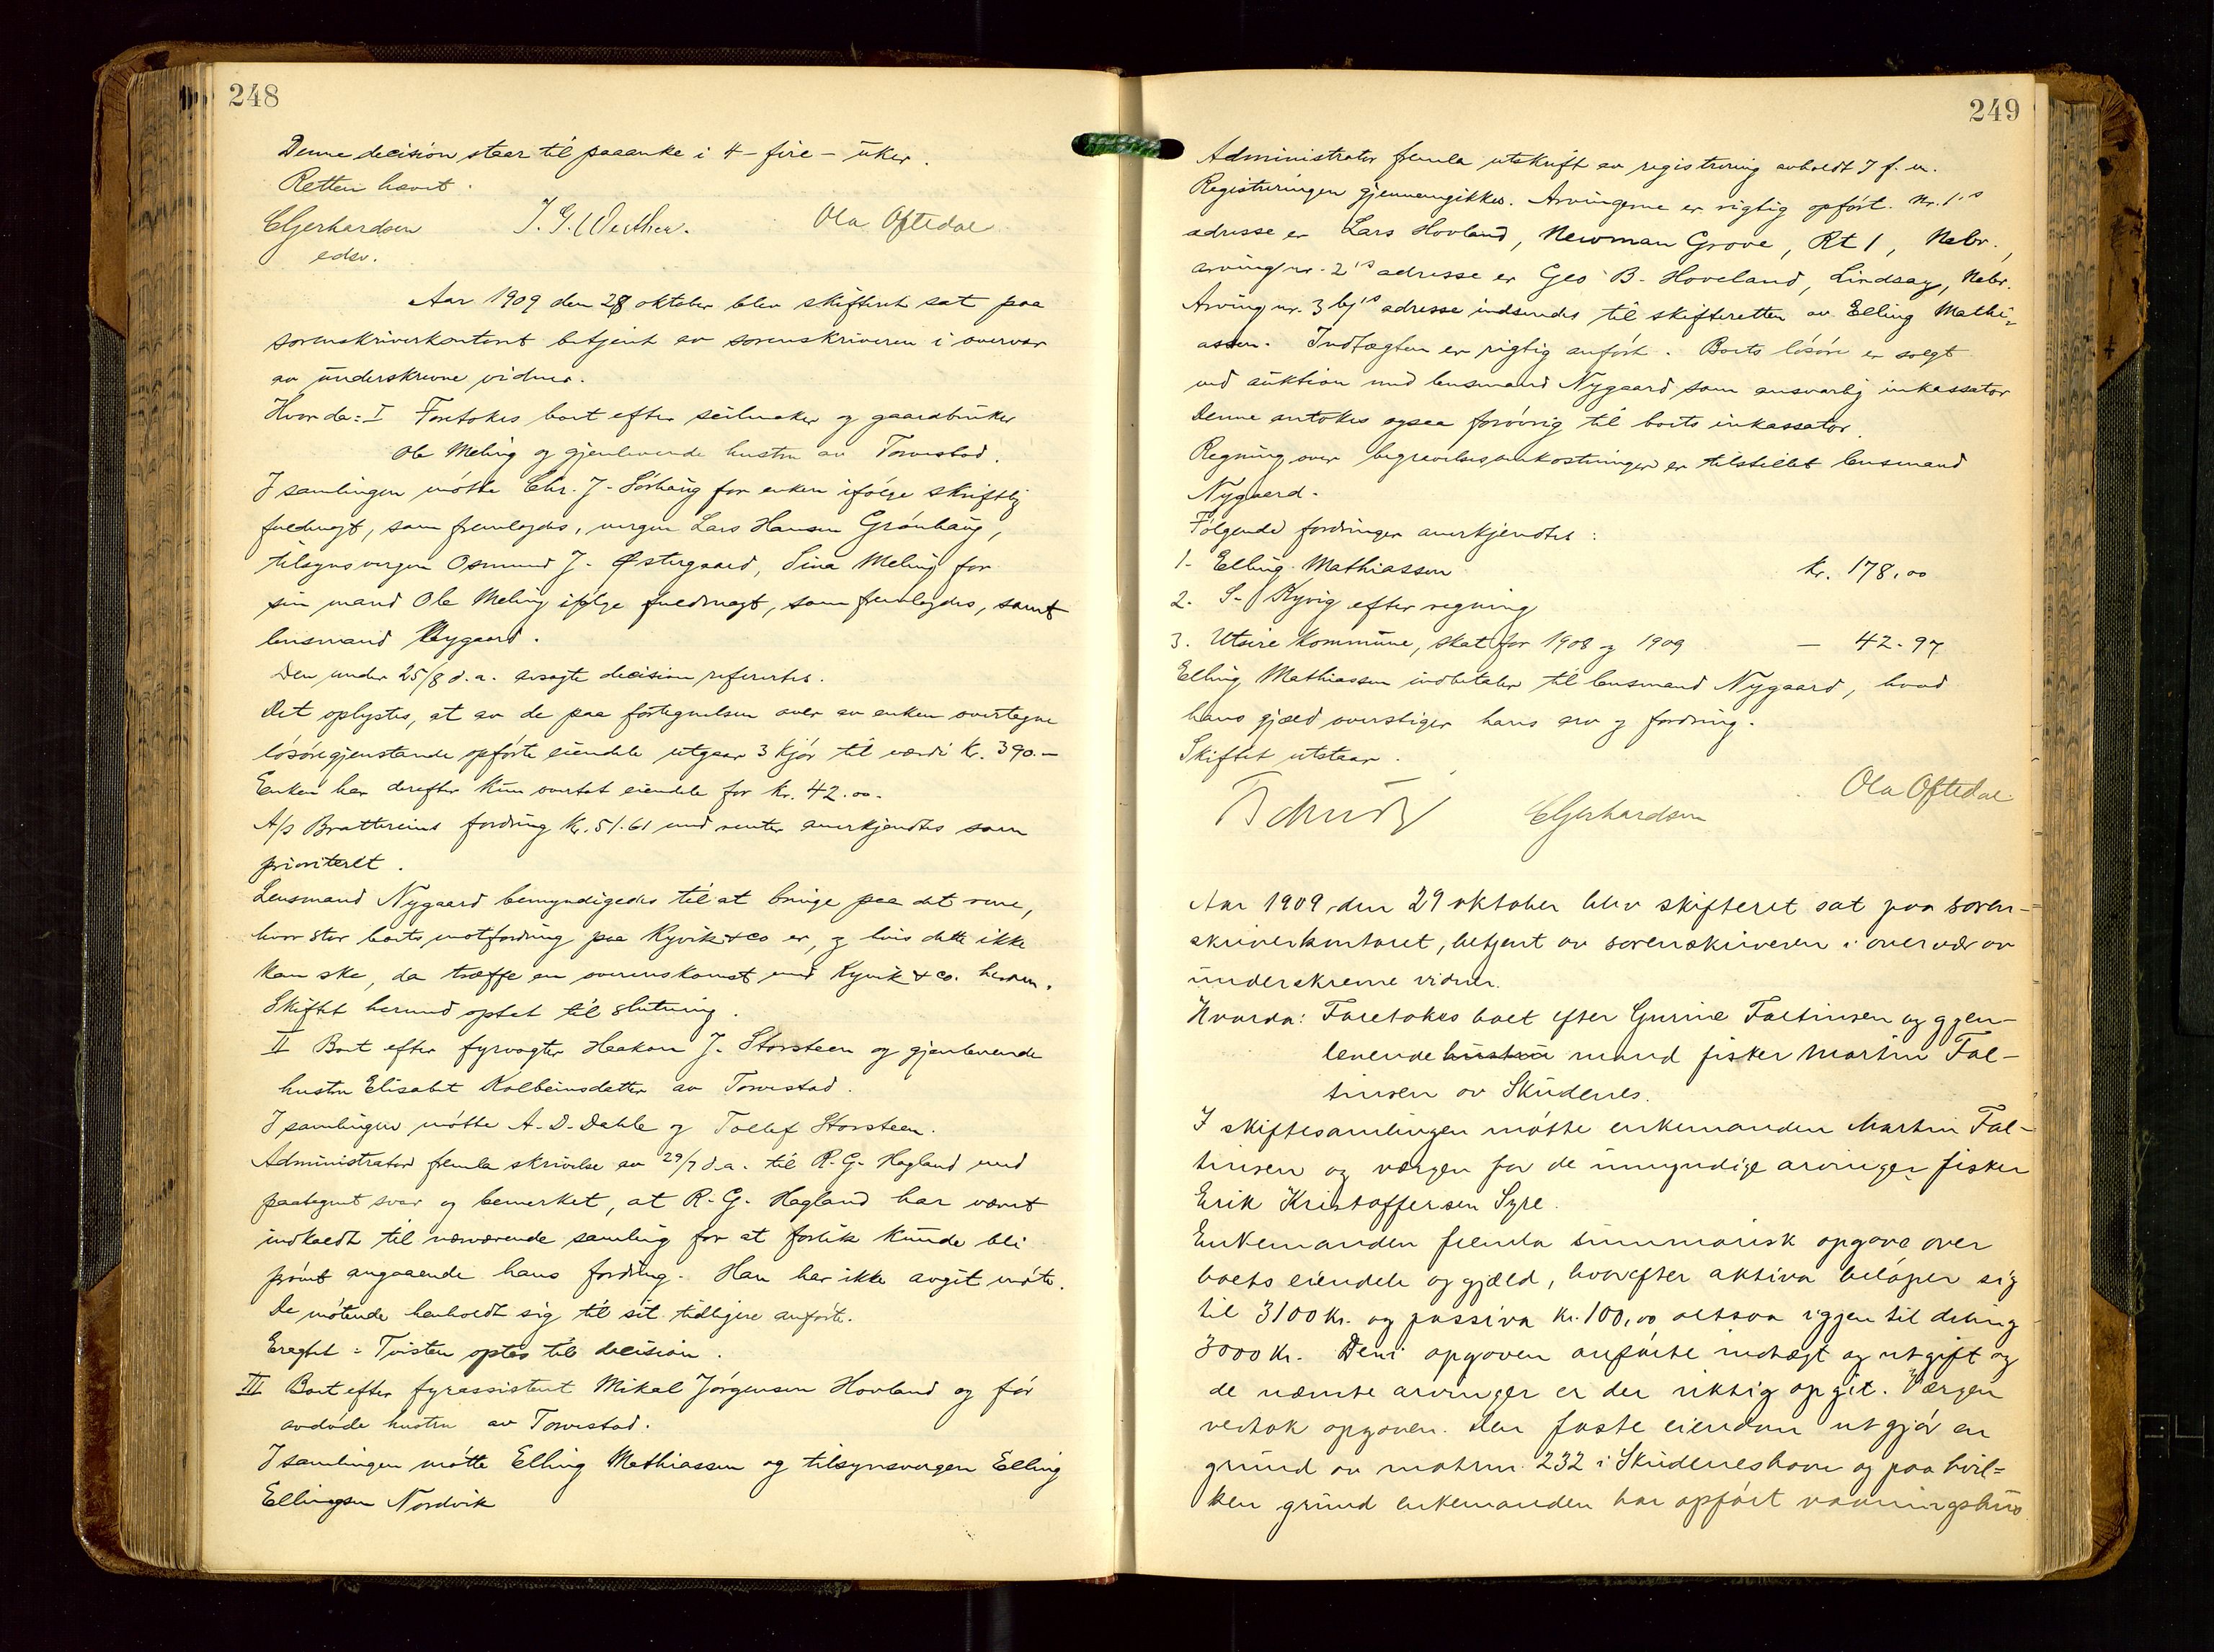 248
Denne decision staar til paaanke i 4 - fire - uker.
Retten hævet.
CGerhardsen J. G. Ola Oftedal
edsv.
Aar 1909 den 28 oktober blev skifteret sat paa
sorenskriverkontoret betjent av sorenskriveren i overvær
av underskrevne vidner.
Hvorda: I Foretokes boet efter seilmaker og gaardbruker
Ole Meling og gjenlevende hustru av Torvestad.
I samlingen møtte Chr. J. Sørhaug for enken ifølge skriftlig
fuldmagt, som fremlagdes, vergen Lars Hansen Grønhaug,
tilsynsvergen Osmund J. Østergaard, Sina Meling for
sin mand Ole Meling ifølge fuldmagt, som fremlagdes, samt
lensmand Nygaard.
Den under 25/8 d.a. avsagte decision refertes.
Det oplystes, at av de paa fortegnelsen over av enken overtagne
løsøregjenstande opførte eiendele utgaar 3 kjør til værdi kr. 390.-
Enken har derefter kun overtat eiendele for kr. 42.00.
A/s Brattereims fordring kr. 51.61 med renter anerkjendtes som
prioritert.
Lensmand Nygaard bemyndigedes til at bringe paa det rene,
hvor stor boets motfordring paa Kyvik & co er, og hvis dette ikke
kan ske, da træffe en overenskomst med Kyvik & co. herom.
Skiftet hermed optat til slutning.
II Boet efter fyrvogter Haakon J. Storsteen og gjenlevende
hustru Elisabet Kolbeinsdatter av Torvestad.
I samlingen møtte A. D. Dahle og Tollef Storsteen.
Administrator fremla skrivelse av 29/7 d.a. til R. G. Hagland med
paategnet svar og bemerket, at R. G. Hagland har været
indkaldt til nærværende samling for at forlik kunde bli
prøvet angaaende hans fordring. Han har ikke avgit møte.
De møtende henholdt sig til sit tidligere anførte.
Eragtet: Tvisten optas til decision.
III Boet efter fyrassistent Mikal Jørgensen Hovland og før
avdøde hustru av Torvestad.
I samlingen møtte Elling Mathiassen og tilsynsvergen Elling
Ellingsen Nordvik
249
Administrator fremla utskrift av registrering avholdt 7 f. m.
Registreringen gjennemgikkes. Arvingerne er rigtig opført. Nr. 1's
adresse er Lars Hovland, Newman Grove, Rt 1, Nebr.,
arving nr. 2's adresse er Geo B. Hoveland, Lindsay, Nebr.
Arving nr. 3 b's adresse indsendes til skifteretten av Elling Mathi-
assen. Indtægten er rigtig anført. Boets løsøre er solgt
ved auktion med lensmand Nygaard som ansvarlig inkassator
Denne antokes ogsaa forøvrig til boets inkassator.
Regning over begravelsesomkostninger er tilstillet lensmand
Nygaard.
Følgende fordringer anerkjendtes:
1. Elling Mathiassen kr. 178.00
2. S. Kyvig efter regning
3. Utsire kommune, skat for 1908 og 1909 — 42.97
Elling Mathiassen indbetaler til lensmand Nygaard, hvad
hans gjæld overstiger hans arv og fordring.
Skiftet utstaar.
CGerhardsen Ola Oftedal
Aar 1909, den 29 oktober blev skifteret sat paa soren-
skriverkontoret, betjent av sorenskriveren i overvær av
underskrevne vidner.
Hvorda: Foretokes boet efter Gurine Faltinsen og gjen-
levende hustru mand fisker Martin Fal-
tinsen av Skudenes.
I skiftesamlingen møtte enkemanden Martin Fal-
tinsen og værgen for de umyndige arvinger fisker
Erik Kristoffersen Syre.
Enkemanden fremla summarisk opgave over
boets eiendele og gjæld, hvorefter aktiva beløper sig
til 3100 kr. og passiva kr. 100,00 altsaa igjen til deling
3000 kr. Den i opgaven anførte indtægt og utgift og
de nævnte arvinger er der riktig opgit. Værgen
vedtok opgaven. Den faste eiendom utgjør en
grund av matrnr. 232 i Skudeneshavn og paa hvil-
ken grund enkemanden har opført vaaningshus